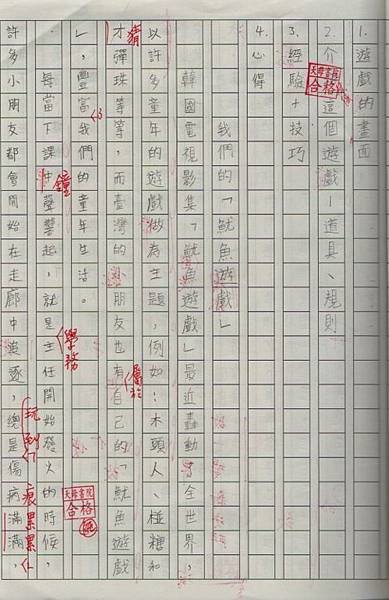 1. 遊戲的畫面
2. 介這個遊戲—道具、規則
3. 經驗+技巧
4. 心得
我們的「魷魚遊戲」
韓國電視影集「魷魚遊戲」最近轟動了全世界,
以許多童年的遊戲做為主題,例如:木頭人、椪糖和
才彈珠等等,而臺灣的小朋友也有自己的「魷魚遊戲
」,豐富我們的童年生活。
每當下課中聲響起,就是主任開始發火的時候,
許多小朋友都會開始在走廊中追逐,總是傷病滿滿,
合格
猜
屬於
鐘
學務
合格
玩到
痕累累